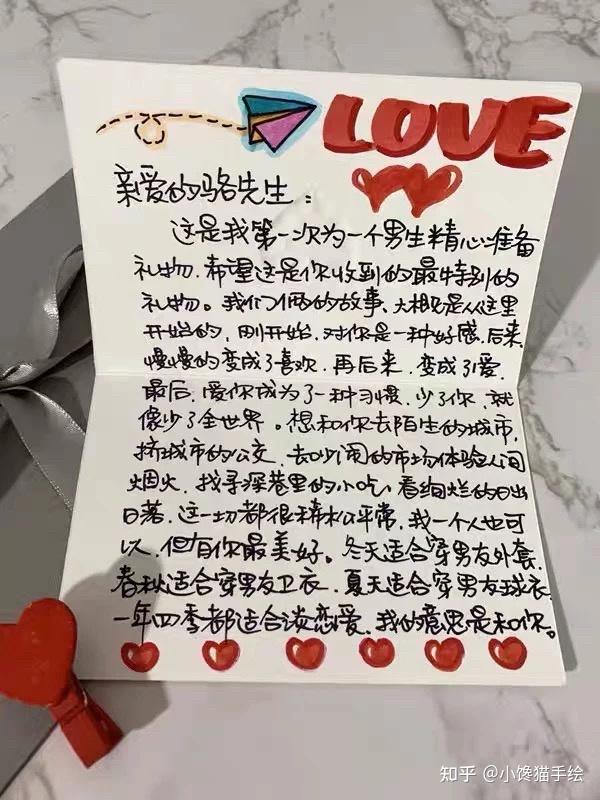 LOVE
亲爱的骆先生:
这是我第一次为一个男生精心准备
礼物,希望这是你收到的最特别的
礼物。我们俩的故事,大概是从这里
开始的,刚开始,对你是一种好感,后来,
慢慢的变成了喜欢,再后来,变成了爱,
最后,爱你成为了一种习惯,少了你,就
像少了全世界。想和你去陌生的城市,
挤城市的公交,去吵闹的市场体验人间
烟火,找寻深巷里的小吃,看绚烂的日出
日落,这一切都很稀松平常,我一个人也可
以,但有你最美好。冬天适合穿男友外套,
春秋适合穿男友卫衣,夏天适合穿男友球衣,
一年四季都适合谈恋爱,我的意思是和你。
知乎 @小馋猫手绘